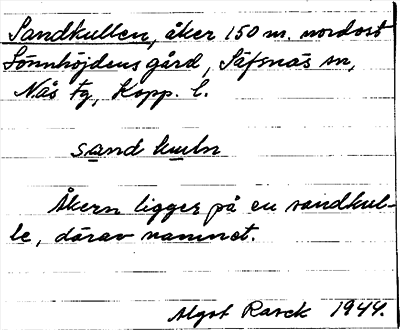 Sandkullen, åker 150 m. nordost
Lönnhöjdens gård, Säfsnäs sn,
Näs tg, Kopp. l.
sand kuln
Åkern ligger på en sandkul-
le, därav namnet.
Algot Rasck 1944.